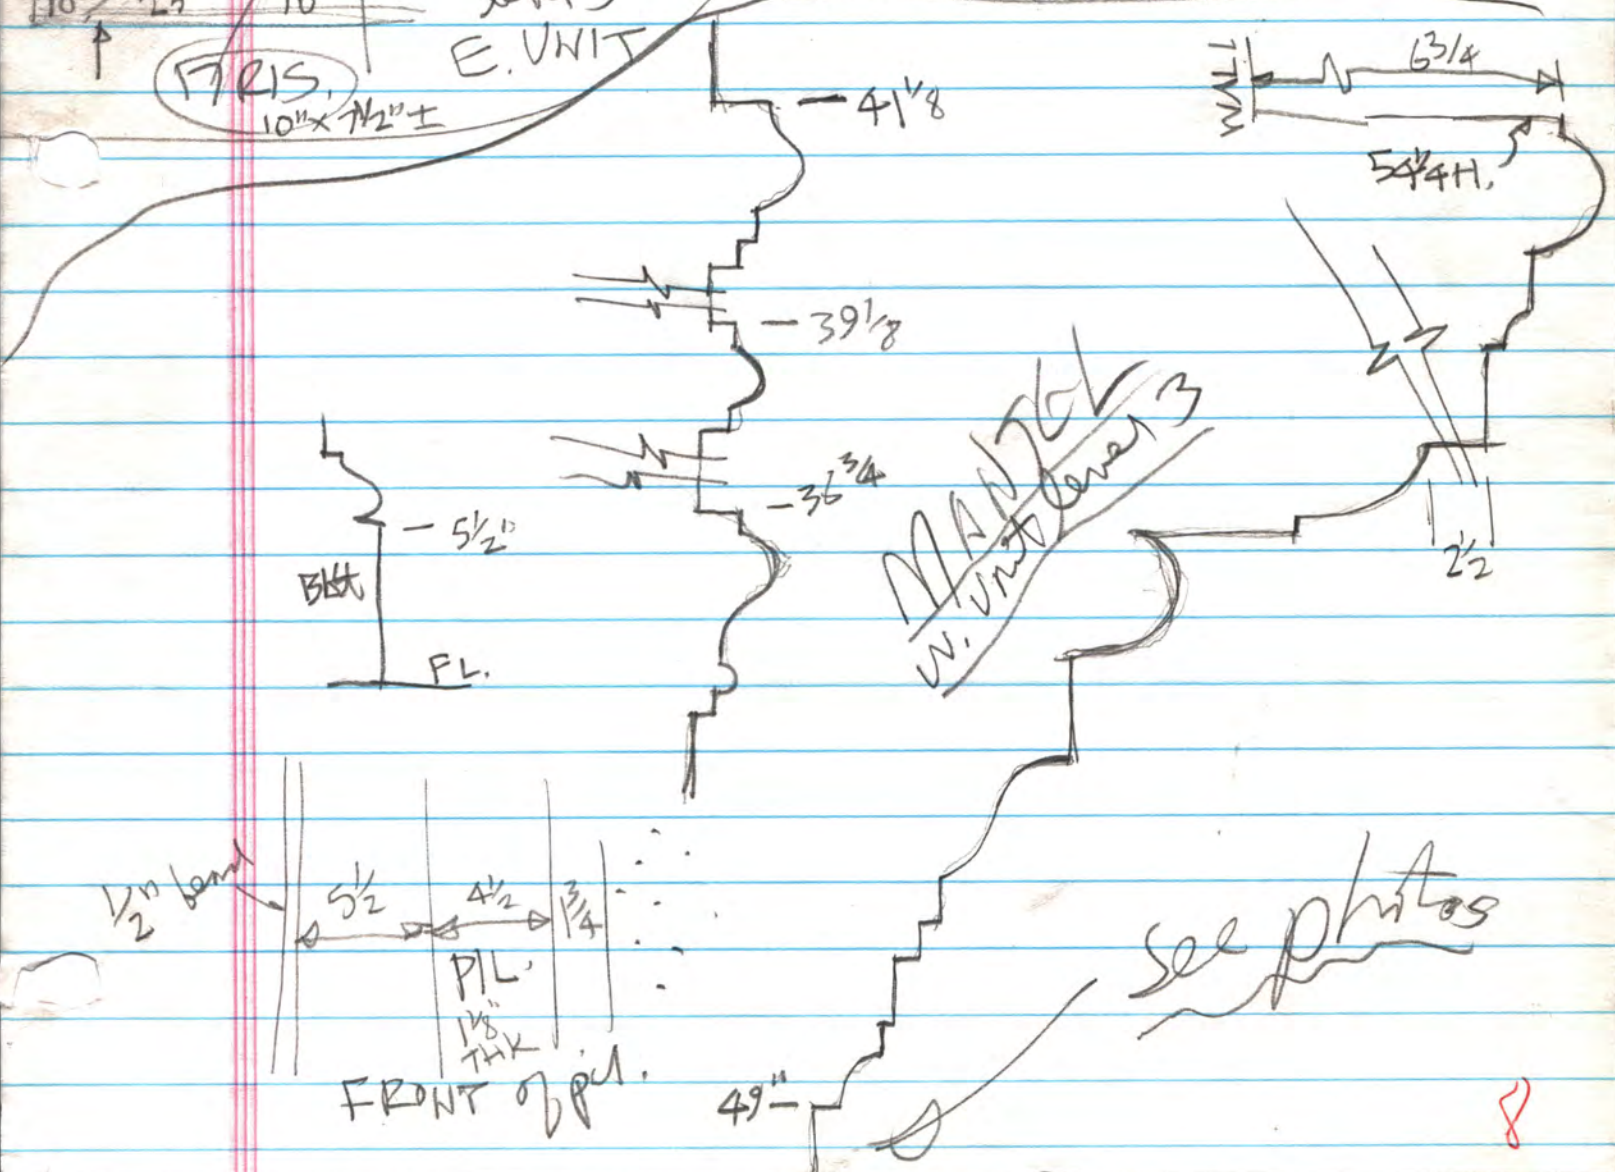 E. UNIT
17 RIS.
10" x 7½" ±
41 1/8
39 1/8
36 3/4
5½"
FL.
6 3/4
WALL
54¼ H.
2½
MANTEL
W. Unit Level 3
½" bead
5½
4½
1 3/4
PIL.
1 1/8"
THK
FRONT of pil.
49"
see photos
8